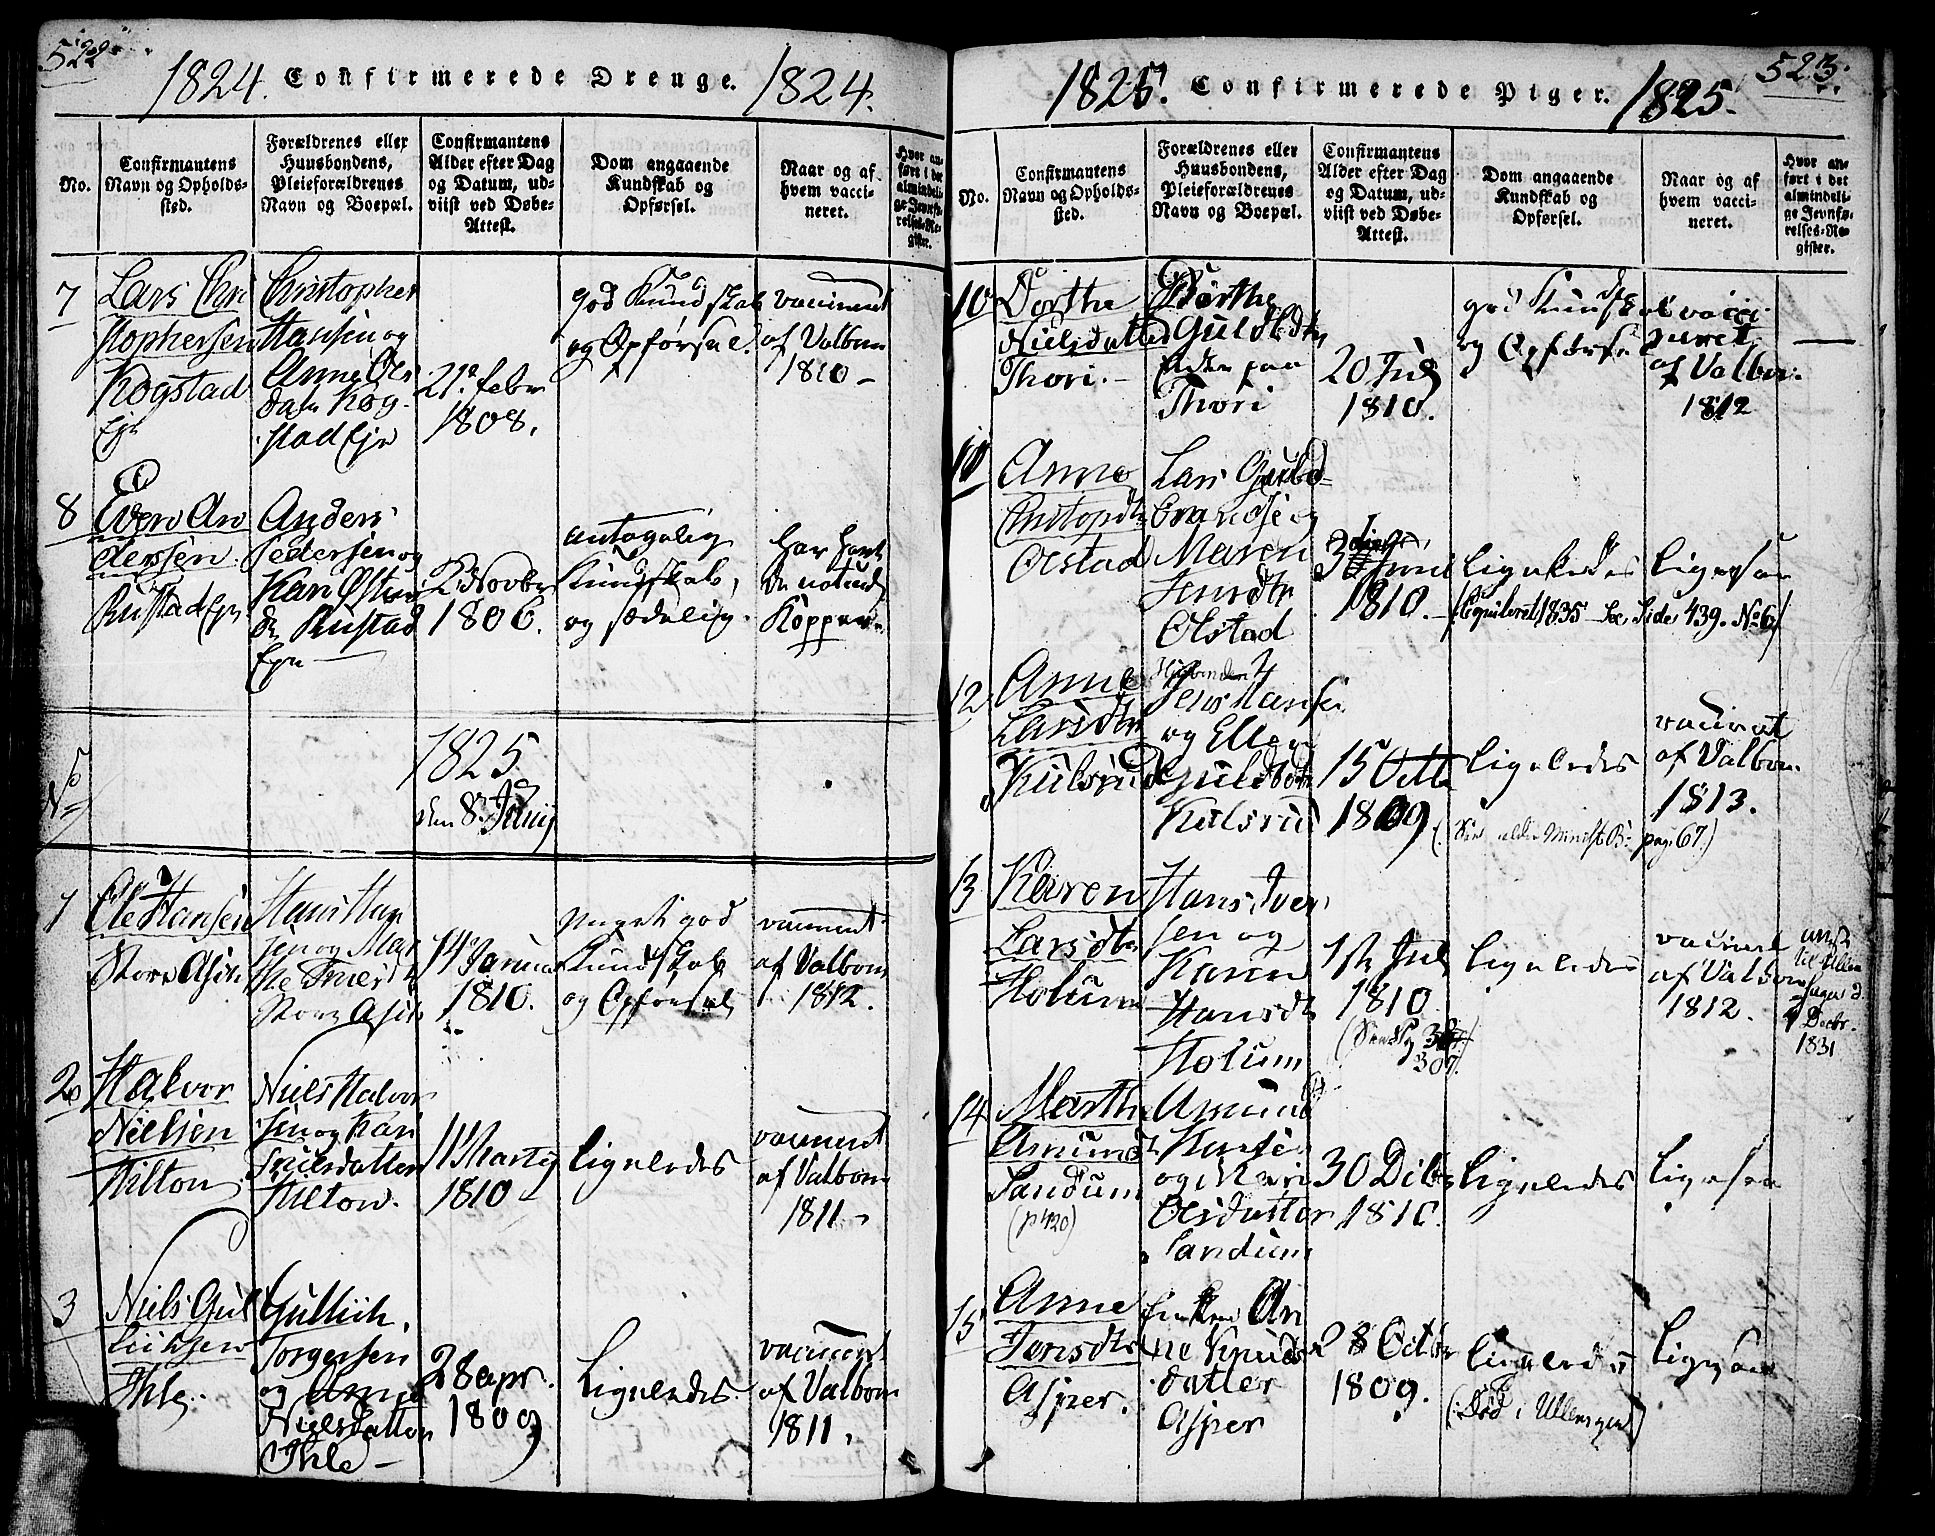 522
1824. Confirmerede Drenge. 1824.
No.
Confirmantens
Navn og Opholds-
sted.
Forældrenes eller
Huusbondens,
Pleieforældrenes
Navn og Boepæl.
Confirmantens
Alder efter Dag
og Datum, ud-
viist ved Døbe-
Attest.
Dom angaaende
Kundskab og
Opførsel.
Naar og af
hvem vacci-
neret.
Hvor an-
ført i det
almindeli-
ge Jevnfø-
relses-Re-
gister.
7
Lars Chri
stophersen
Kogstad
Eje
Christopher
Hansen og
Anne Ols
datr Kog-
stad Eje
21 febr
1808.
god Kundskab
og Opførsel.
vaccineret
af Valbom
1810-
8
Even An
dersen
Rustad Eje
Anders
Pedersen og
Kari Østen
dr Rustad
Eje
2 Novbr
1806.
antagelig
Kundskab,
og sædelig.
har havt
de naturl
Kopper
No
1825
den 8 Juny
1
Ole Hansen
Store Asik
Hans Han
sen og Mar
the Truls dr
Store Asik
14 Janua
1810.
Meget god
Kundskab
og Opførsel
vaccineret
af Valbom
1812.
2
Halvor
Nielsen
Hilton
Niels Halvor
sen og Kari
Truelsdatter
Hilton.
11 Marty
1810
Ligeledes
vaccineret
af Valbom
1811-
3
Niels Gul
liichsen
Ihle
Gulliich
Torgersen
og Anne
Nielsdatter
Ihle
28 apr.
1809
Ligeledes
vaccineret
af Valbom
1811.
523.
1825. Confirmerede Piger. 1825.
No.
Confirmantens
Navn og Opholds-
sted.
Forældrenes eller
Huusbondens,
Pleieforældrenes
Navn og Boepæl.
Confirmantens
Alder efter Dag
og Datum, ud-
viist ved Døbe-
Attest.
Dom angaaende
Kundskab og
Opførsel.
Naar og af
hvem vacci-
neret.
Hvor an-
ført i det
almindeli-
ge Jevnfø-
relses-Re-
gister.
10
Dorthe
Nielsdatter
Thori.
Børthe
Guldbdtr
Enke paa
Thori
20 July
1810.
god Kundskab
og Opførsel
vacci-
neret
af Valbom
1812
11
Anne
Christopdtr
Olstad
Lars Guldb-
brandse og
Maren
Jensdtr
Olstad
30 Juni
1810.
Ligeledes
Ligesaa
1835 Se, Side, 439. No 6
12
Anne
Larsdtr
Kulsrud
Jens Hanse
og Ellen
Guldbdtr
Kulsrud
15 Octb
1809
Ligeledes
vaccineret
af Valbom
1813.
(See ældre Minist B: pag. 67.)
13
Karen
Larsdtr
Holum
Hans Iver
sen og
Karen
Hansdtr
Holum
1ste July
1810.
307.
Ligeledes
vaccineret
af Valbom
1812.
Decbr.
1831
14
Marthe
Amundsdtr
Sandum
(p 420)
Amund
Hanse
og Mari
Olsdatter
Sandum
30 Dcbr
1810.
Ligeledes
Ligesaa
15
Anne
Jensdtr
Asper.
Enken An
ne Knuds
datter
Asper
28 Octbr
1809.
Ligeledes
Ligesaa
(Død i Ullensager)